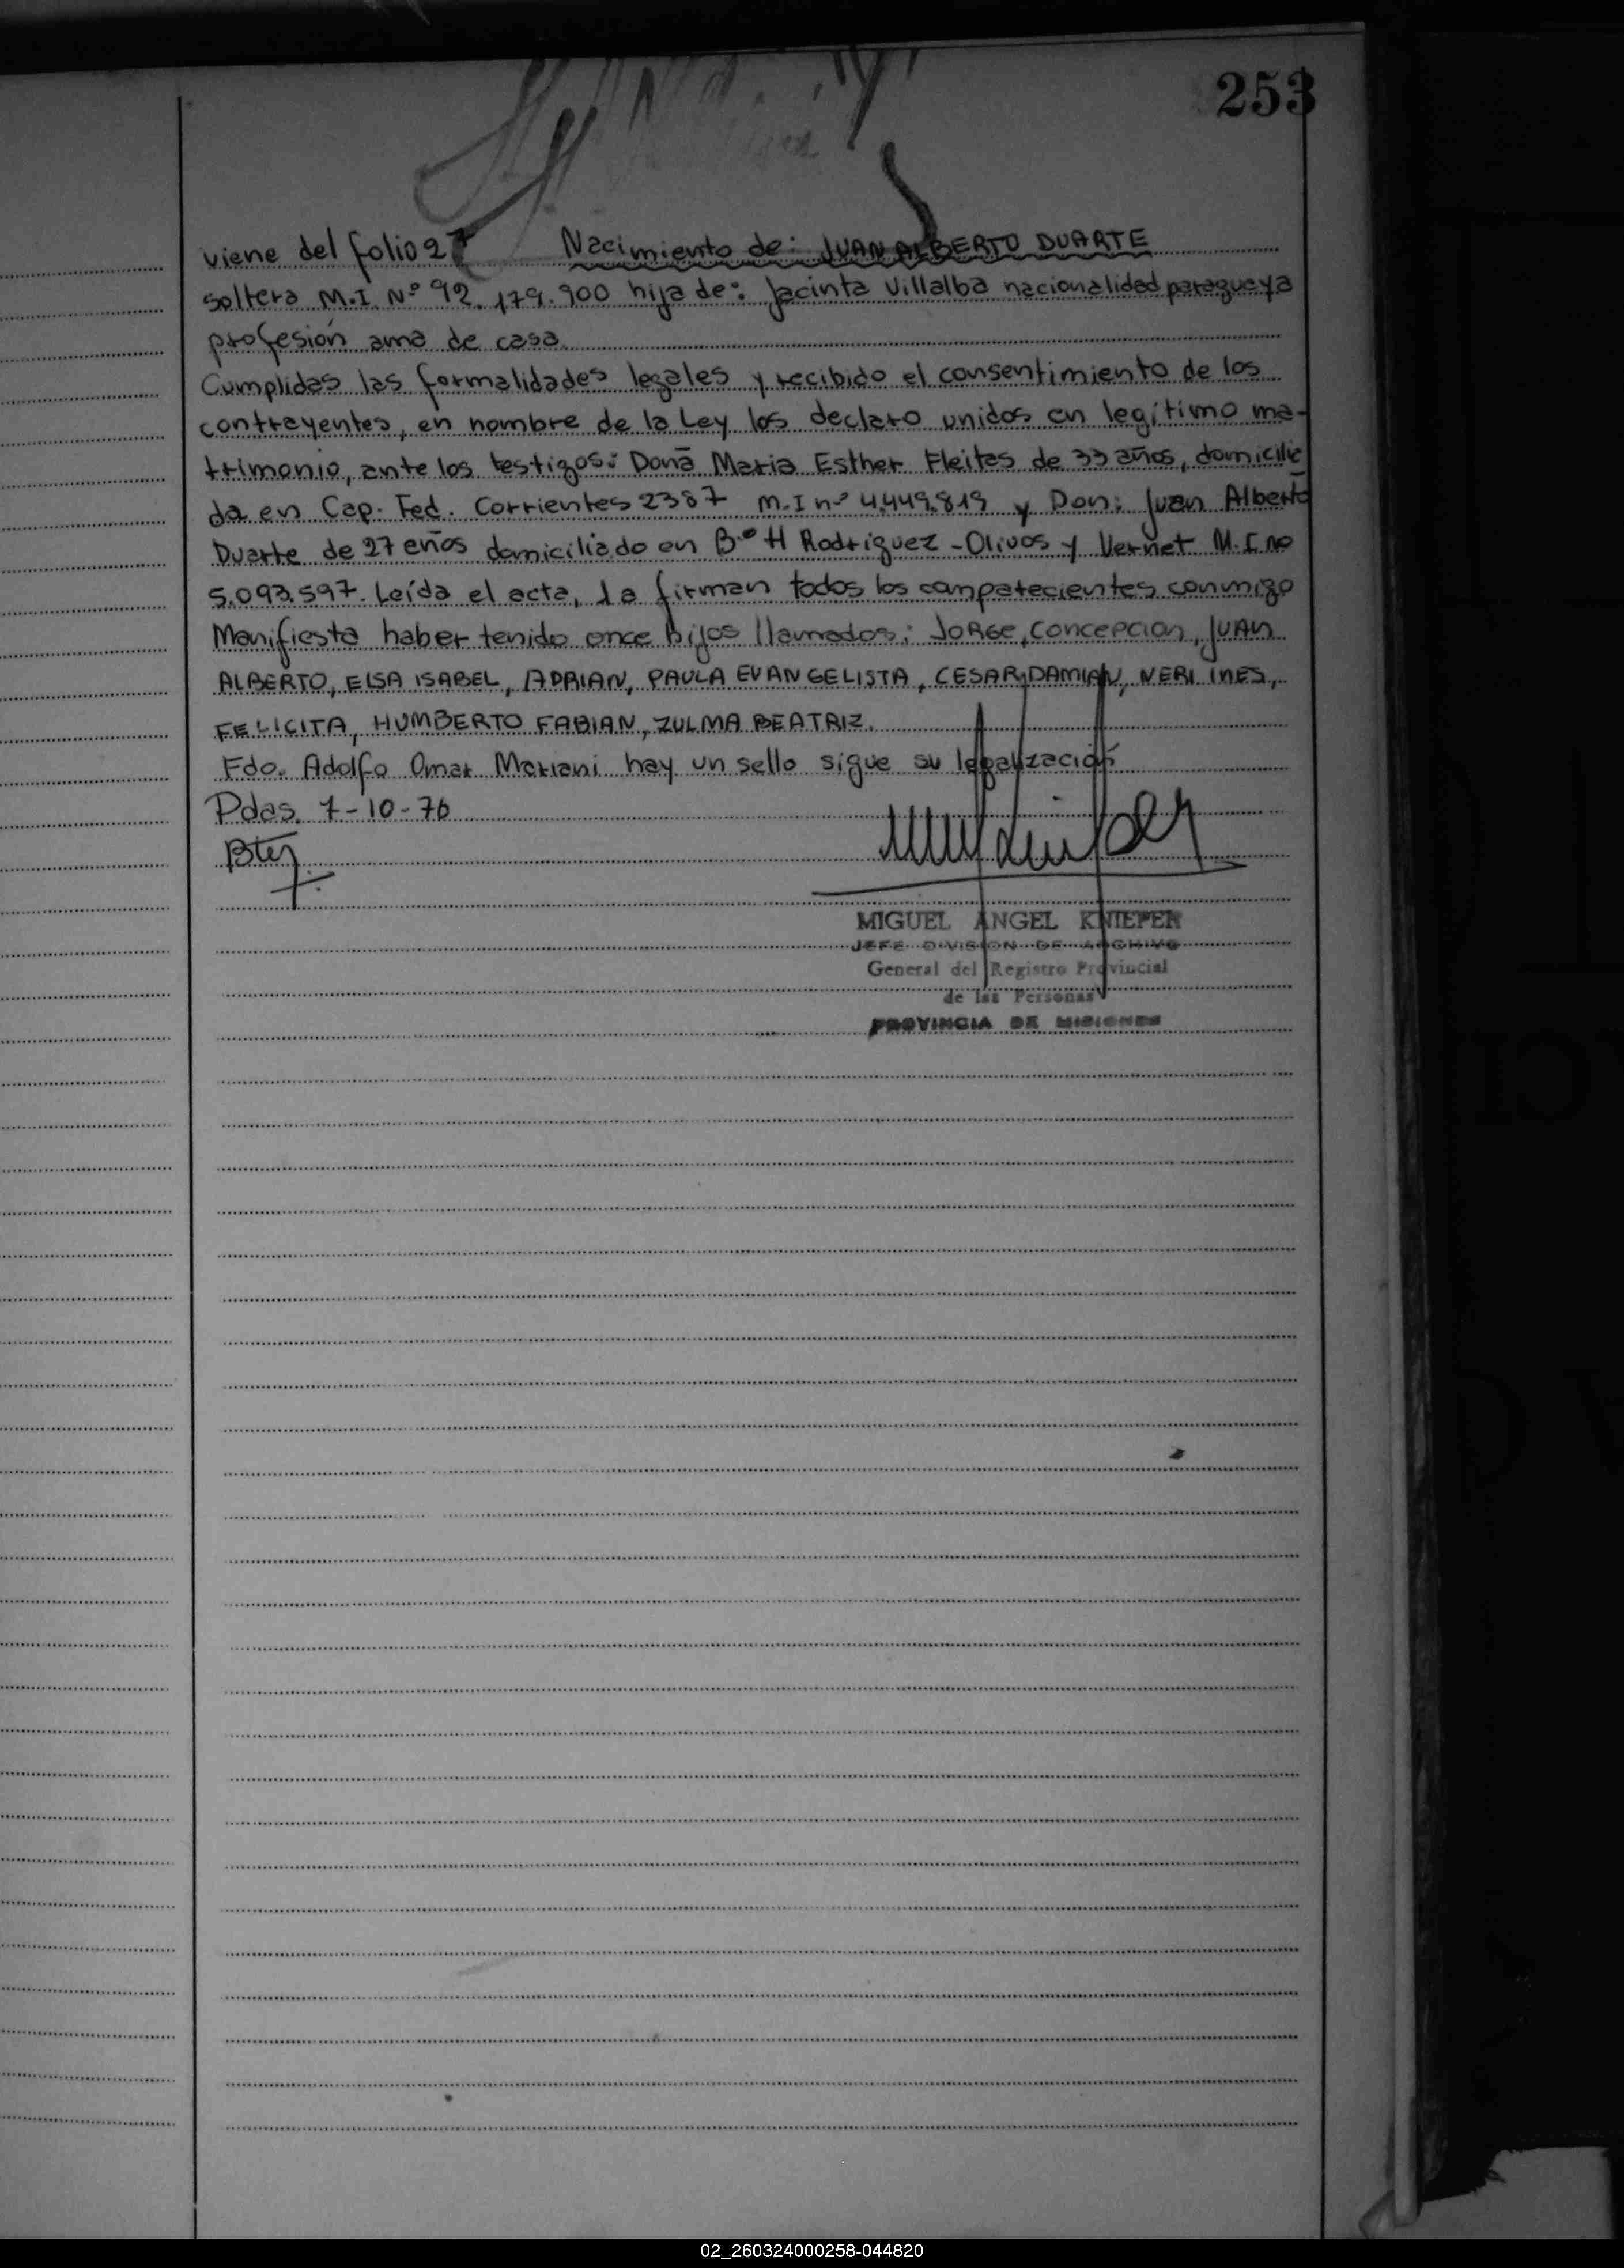 253
viene del folio 27 Nacimiento de: JUAN ALBERTO DUARTE
soltera M.I. Nº 92.179.900 hija de: Jacinta Villalba nacionalidad paraguaya
profesión ama de casa
Cumplidas las formalidades legales y recibido el consentimiento de los
contrayentes, en nombre de la Ley los declaro unidos en legítimo ma-
trimonio, ante los testigos: Doña Maria Esther Fleites de 33 años, domicilia
da en Cap. Fed. Corrientes 2387 M.I nº 4.449.819 y Don: Juan Alberto
Duarte de 27 años domiciliado en B.º H Rodriguez - Olivos y Vernet M.I. no
5.093.597. Leída el acta, la firman todos los comparecientes conmigo
Manifiesta haber tenido once hijos llamados: JORGE, CONCEPCION, JUAN
ALBERTO, ELSA ISABEL, ADRIAN, PAULA EVANGELISTA, CESAR DAMIAN, NERI INES,
FELICITA, HUMBERTO FABIAN, ZULMA BEATRIZ.
Fdo. Adolfo Omar Mariani hay un sello sigue su legalización
Pdas. 7-10-76
MIGUEL ANGEL KNIEPER
JEFE DIVISION DE ARCHIVO
General del Registro Provincial
de las Personas
PROVINCIA DE MISIONES
02_260324000258-044820